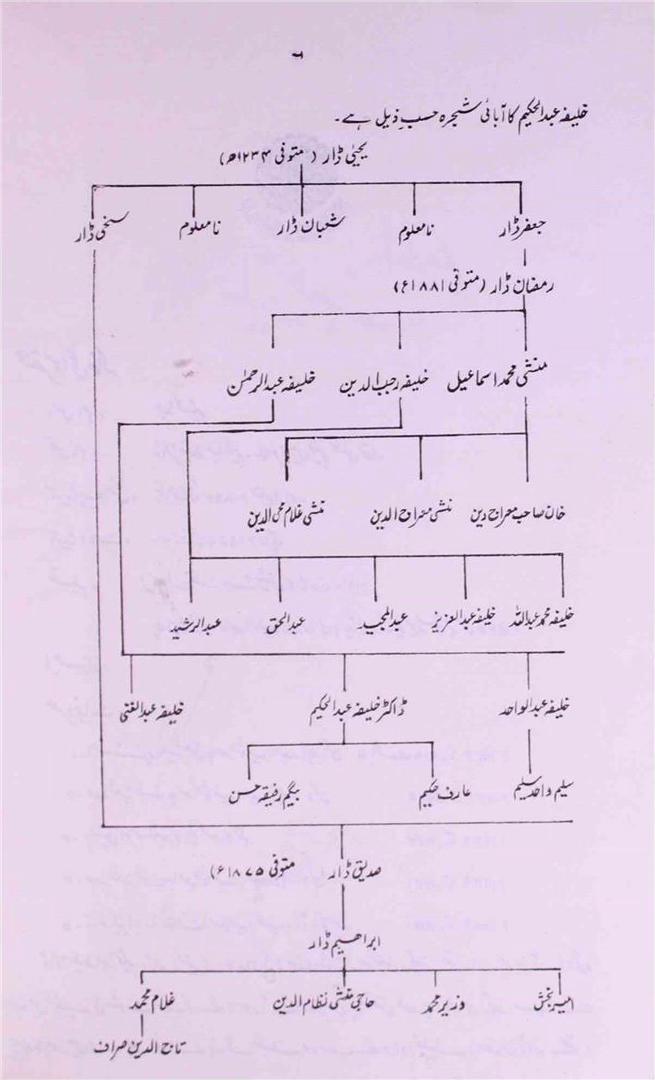 ۶
خلیفہ عبدالحکیم کا آبائی شجرہ حسبِ ذیل ہے۔
یحییٰ ڈار (متوفی ۱۲۳۴ھ)
جعفر ڈار نامعلوم شعبان ڈار نامعلوم سخی ڈار
رمضان ڈار (متوفی ۱۸۸۱ء)
منشی محمد اسماعیل خلیفہ رجب الدین خلیفہ عبدالرحمٰن
خان صاحب معراج دین منشی معراج الدین منشی غلام محی الدین
خلیفہ محمد عبداللہ خلیفہ عبدالعزیز عبدالمجید عبدالحق عبدالرشید
خلیفہ عبدالواحد ڈاکٹر خلیفہ عبدالحکیم خلیفہ عبدالغنی
سلیم واحد سلیم عارف حکیم بیگم رفیعہ حسن
صدیق ڈار متوفی ۱۸۷۵ء)
ابراھیم ڈار
امیر بخش وزیر محمد حاجی منشی نظام الدین غلام محمد
تاج الدین صراف